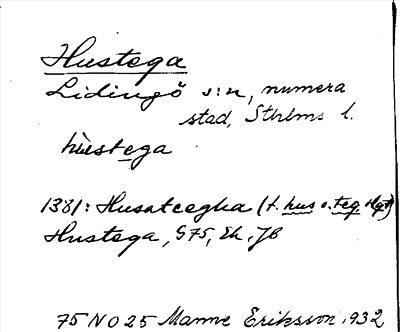 Hustega
Lidingö s:n, numera
stad, Sthlms l.
hùstega
1381: Husateegha (t. hus o. teg Hgt)
Hustega, G75, Ek, JB
75 NO 25 Manne Eriksson 1932